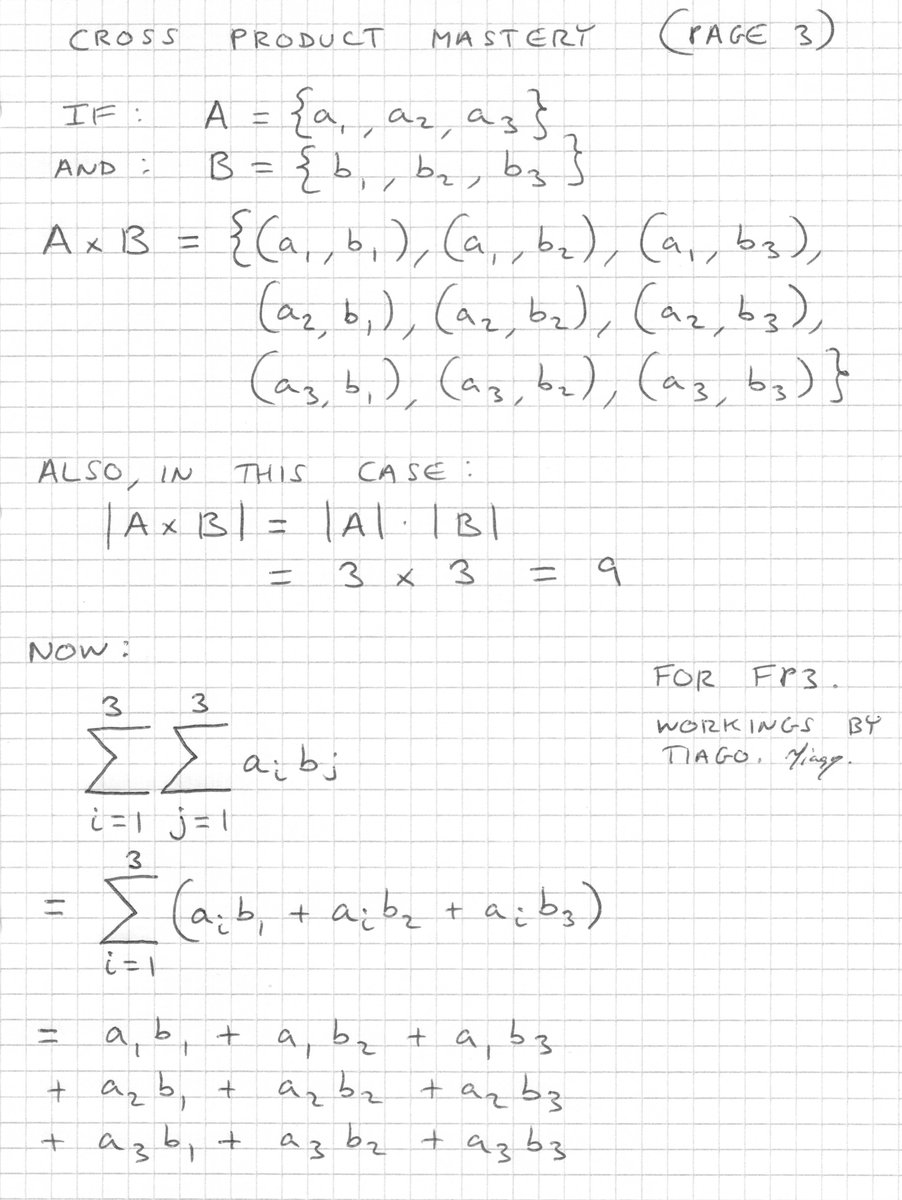 CROSS PRODUCT MASTERY (PAGE 3)
IF: A = {a₁, a₂, a₃}
AND: B = {b₁, b₂, b₃}
A × B = {(a₁, b₁), (a₁, b₂), (a₁, b₃),
(a₂, b₁), (a₂, b₂), (a₂, b₃),
(a₃, b₁), (a₃, b₂), (a₃, b₃)}
ALSO, IN THIS CASE:
|A × B| = |A| · |B|
= 3 × 3 = 9
NOW:
FOR FP3.
WORKINGS BY
TIAGO. Tiago.
3 3
∑ ∑ aᵢ bⱼ
i=1 j=1
3
= ∑ (aᵢb₁ + aᵢb₂ + aᵢb₃)
i=1
= a₁b₁ + a₁b₂ + a₁b₃
+ a₂b₁ + a₂b₂ + a₂b₃
+ a₃b₁ + a₃b₂ + a₃b₃